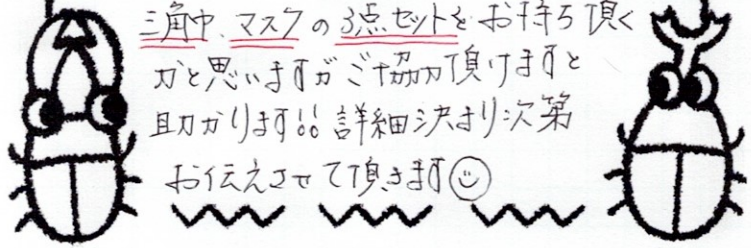 三角巾、マスクの3点セットをお持ち頂く
かと思いますがご協力頂けますと
助かります!! 詳細決まり次第
お伝えさせて頂きます